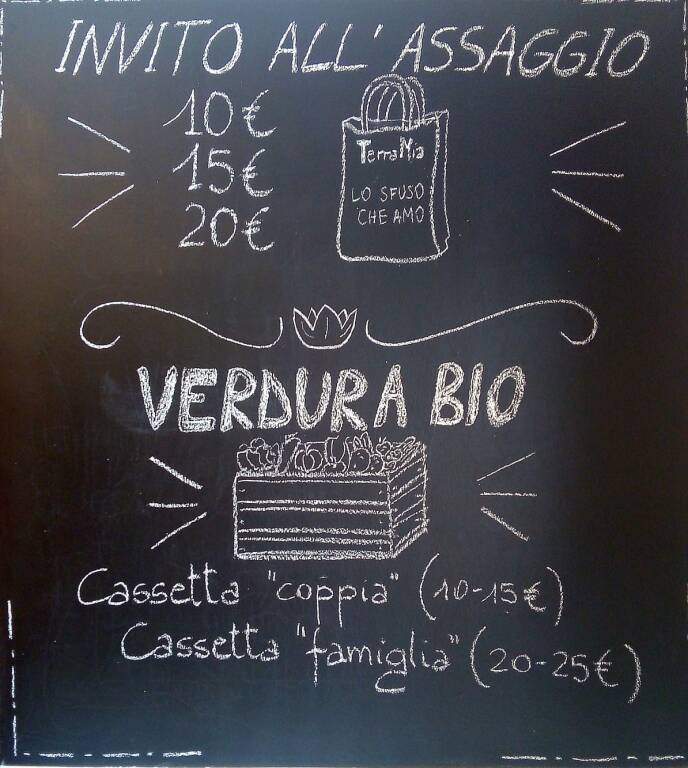 INVITO ALL'ASSAGGIO
10€
15€
20€
TerraMia
LO SFUSO
CHE AMO
VERDURA BIO
Cassetta "coppia" (10-15€)
Cassetta "famiglia" (20-25€)